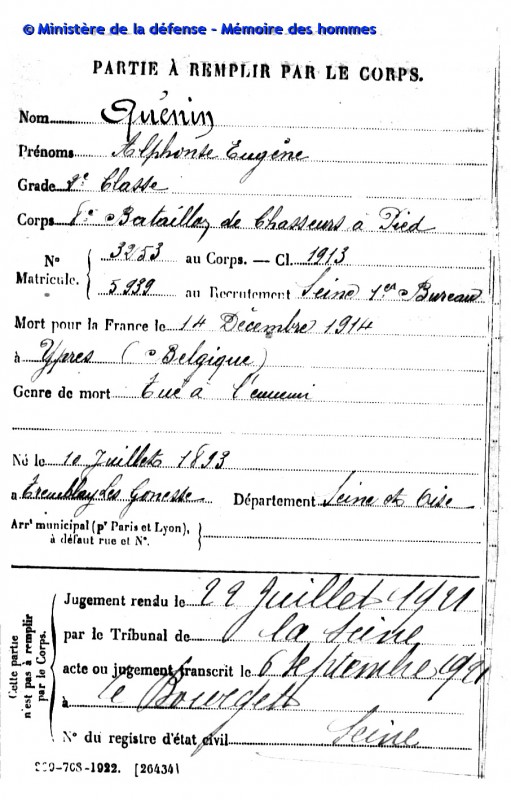 © Ministère de la défense - Mémoire des hommes
PARTIE À REMPLIR PAR LE CORPS.
Nom Quénin
Prénoms Alphonse Eugène
Grade 2e Classe
Corps 8e Bataillon de Chasseurs à Pied
N° Matricule. { 3253 au Corps. — Cl. 1913
5939 au Recrutement Seine 1er Bureau
Mort pour la France le 14 Décembre 1914
à Ypres (Belgique)
Genre de mort Tué à l'ennemi
Né le 10 Juillet 1893
à Tremblay les Gonesse Département Seine et Oise
Arrt municipal (pr Paris et Lyon),
à défaut rue et N°.
Cette partie
n'est pas à remplir
par le Corps.
Jugement rendu le 22 Juillet 1921
par le Tribunal de la Seine
acte ou jugement transcrit le 6 Septembre 1921
à le Bourget
N° du registre d'état civil Seine
-708-1922. [26434]